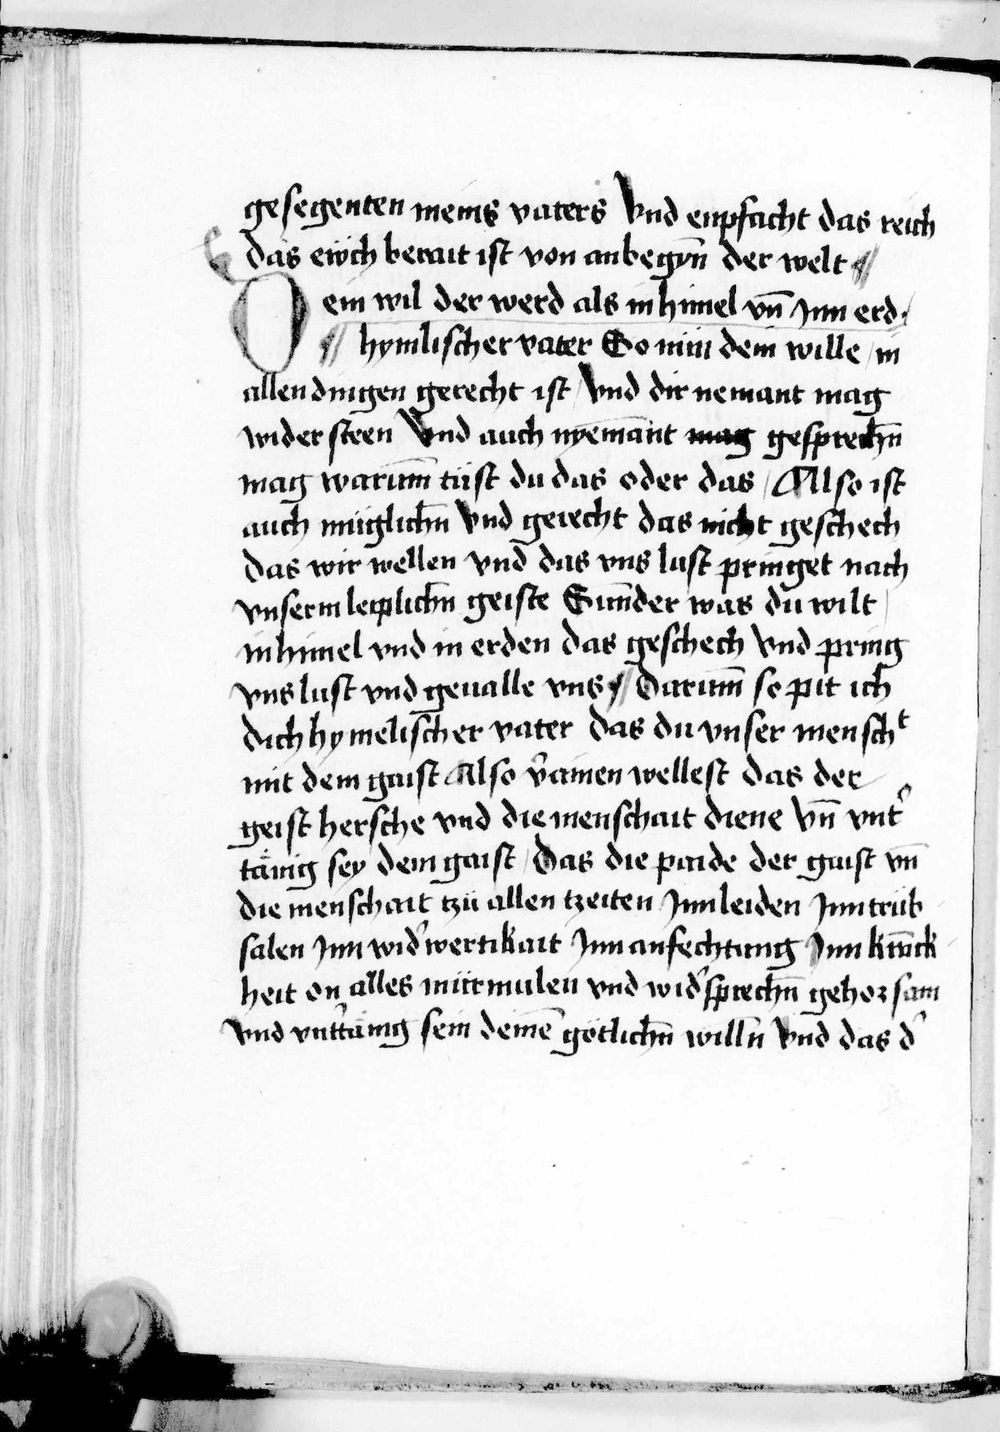 gesegenten meins vaters Vnd enpfacht das reich
das ewch berait ist von anbegyn̄ der welt
Dein wil der werd als in himel vn̄ Jnn erd
hymlischer vater So nün dein wille in
allen dingen gerecht ist / Vnd dir nemant mag
wider steen Vnd auch nyemant mag gesprechn̄
mag warum̄ tüst du das oder das / Also ist
auch müglichn̄ Vnd gerecht das nicht geschech
das wir wellen vnd das vns lust pringet nach
vnserm leiplichn̄ geiste Sun̄der was du wilt /
in himel vnd in erden das geschech Vnd pring
vns lust vnd geualle vns Darum̄ so pit ich
dich hymelischer vater das du vnser menscht
mit dem gaist Also v̓ainen wellest das der
geist hersche vnd die menschait diene Vn̄ vnt̓
tänig sey dem gaist / Das die paide der gaist vn̄
die menschait tzü allen tzeiten Jnn leiden Jnn trüb
salen Jnn wid̓wertikait Jnn anfechtung Jnn kranck
heit on alles mürmulen vnd wid̓sprechn̄ gehorsam
Vnd vnt̓tänig sein deinē götlichn̄ willn̄ Vnd das d̓